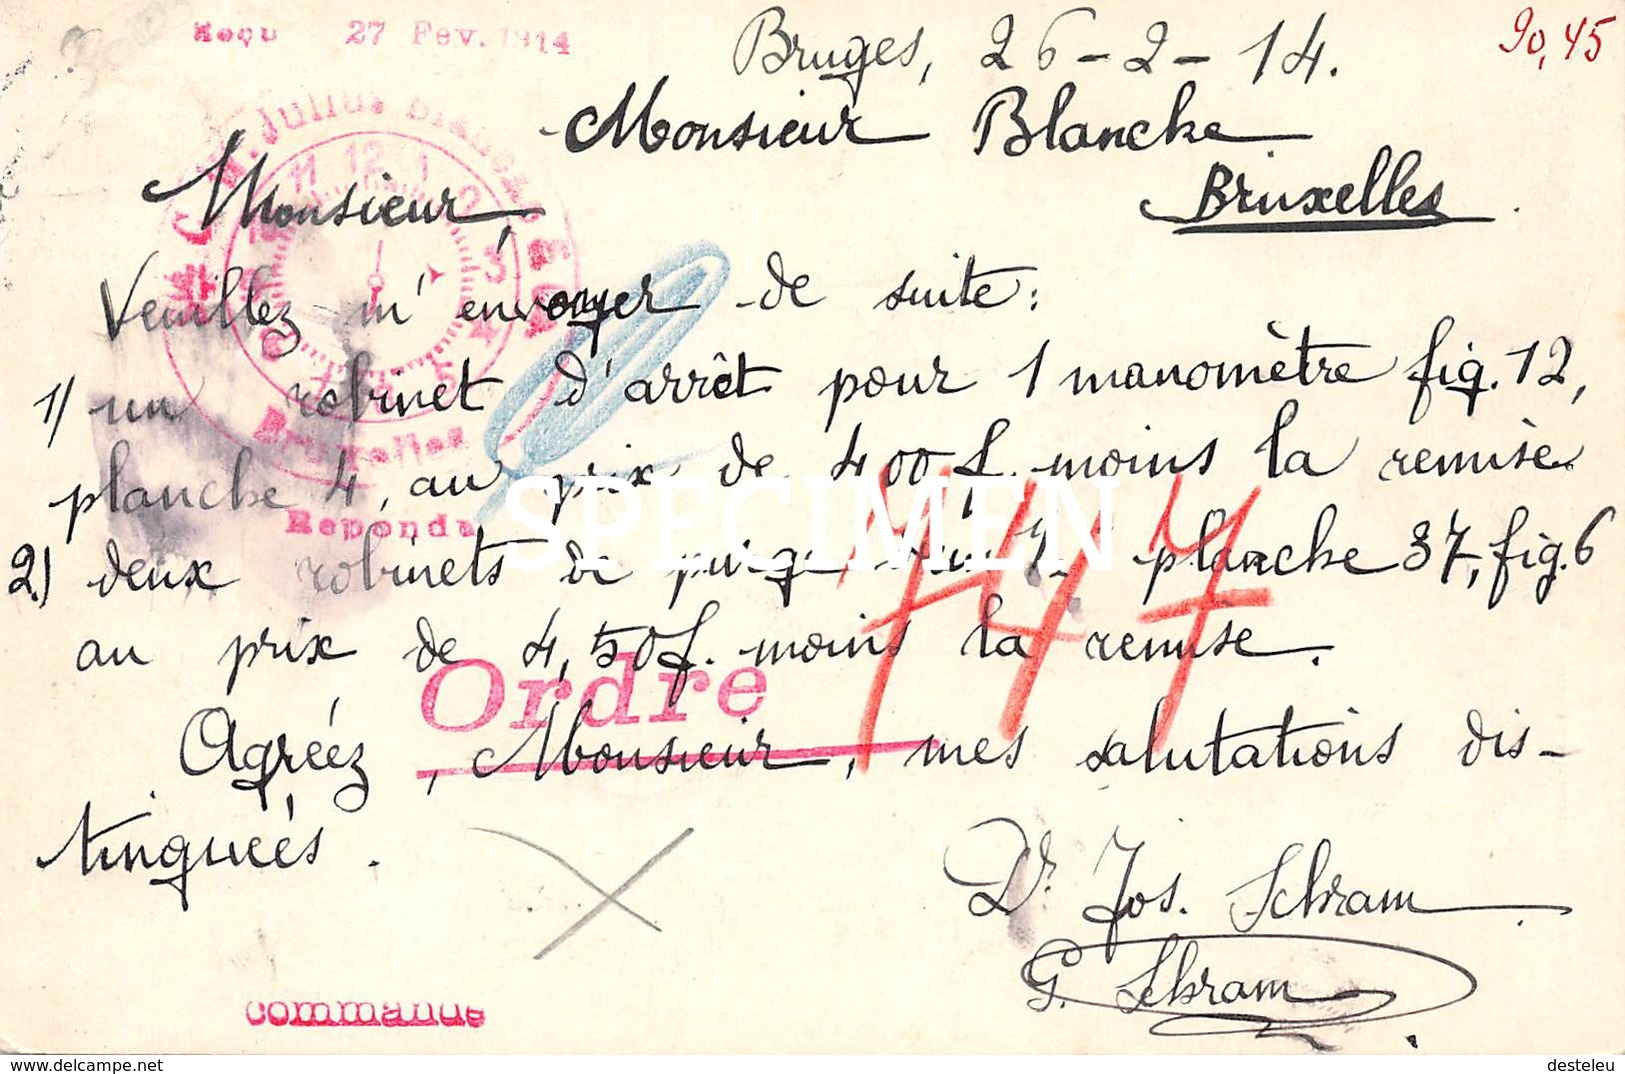 Reçu 27 Fev. 1914
Bruges, 26-2-14.
90,45
Monsieur Blancke
Bruxelles.
Monsieur,
Veuillez m'envoyer de suite:
1) un robinet d'arrêt pour 1 manomètre fig. 12,
planche 4, au prix de 4 00 f. moins la remise
2) deux robinets de purge planche 37, fig. 6
au prix de 4,50 f. moins la remise.
Agréez, Monsieur, mes salutations dis-
tinguées.
Dr Jos. Schram
G. Schram
Julius Blancke
11 12 1
3
Bruxelles
Repondu
SPECIMEN
747
Ordre
commande
https://www.delcampe.net
desteleu